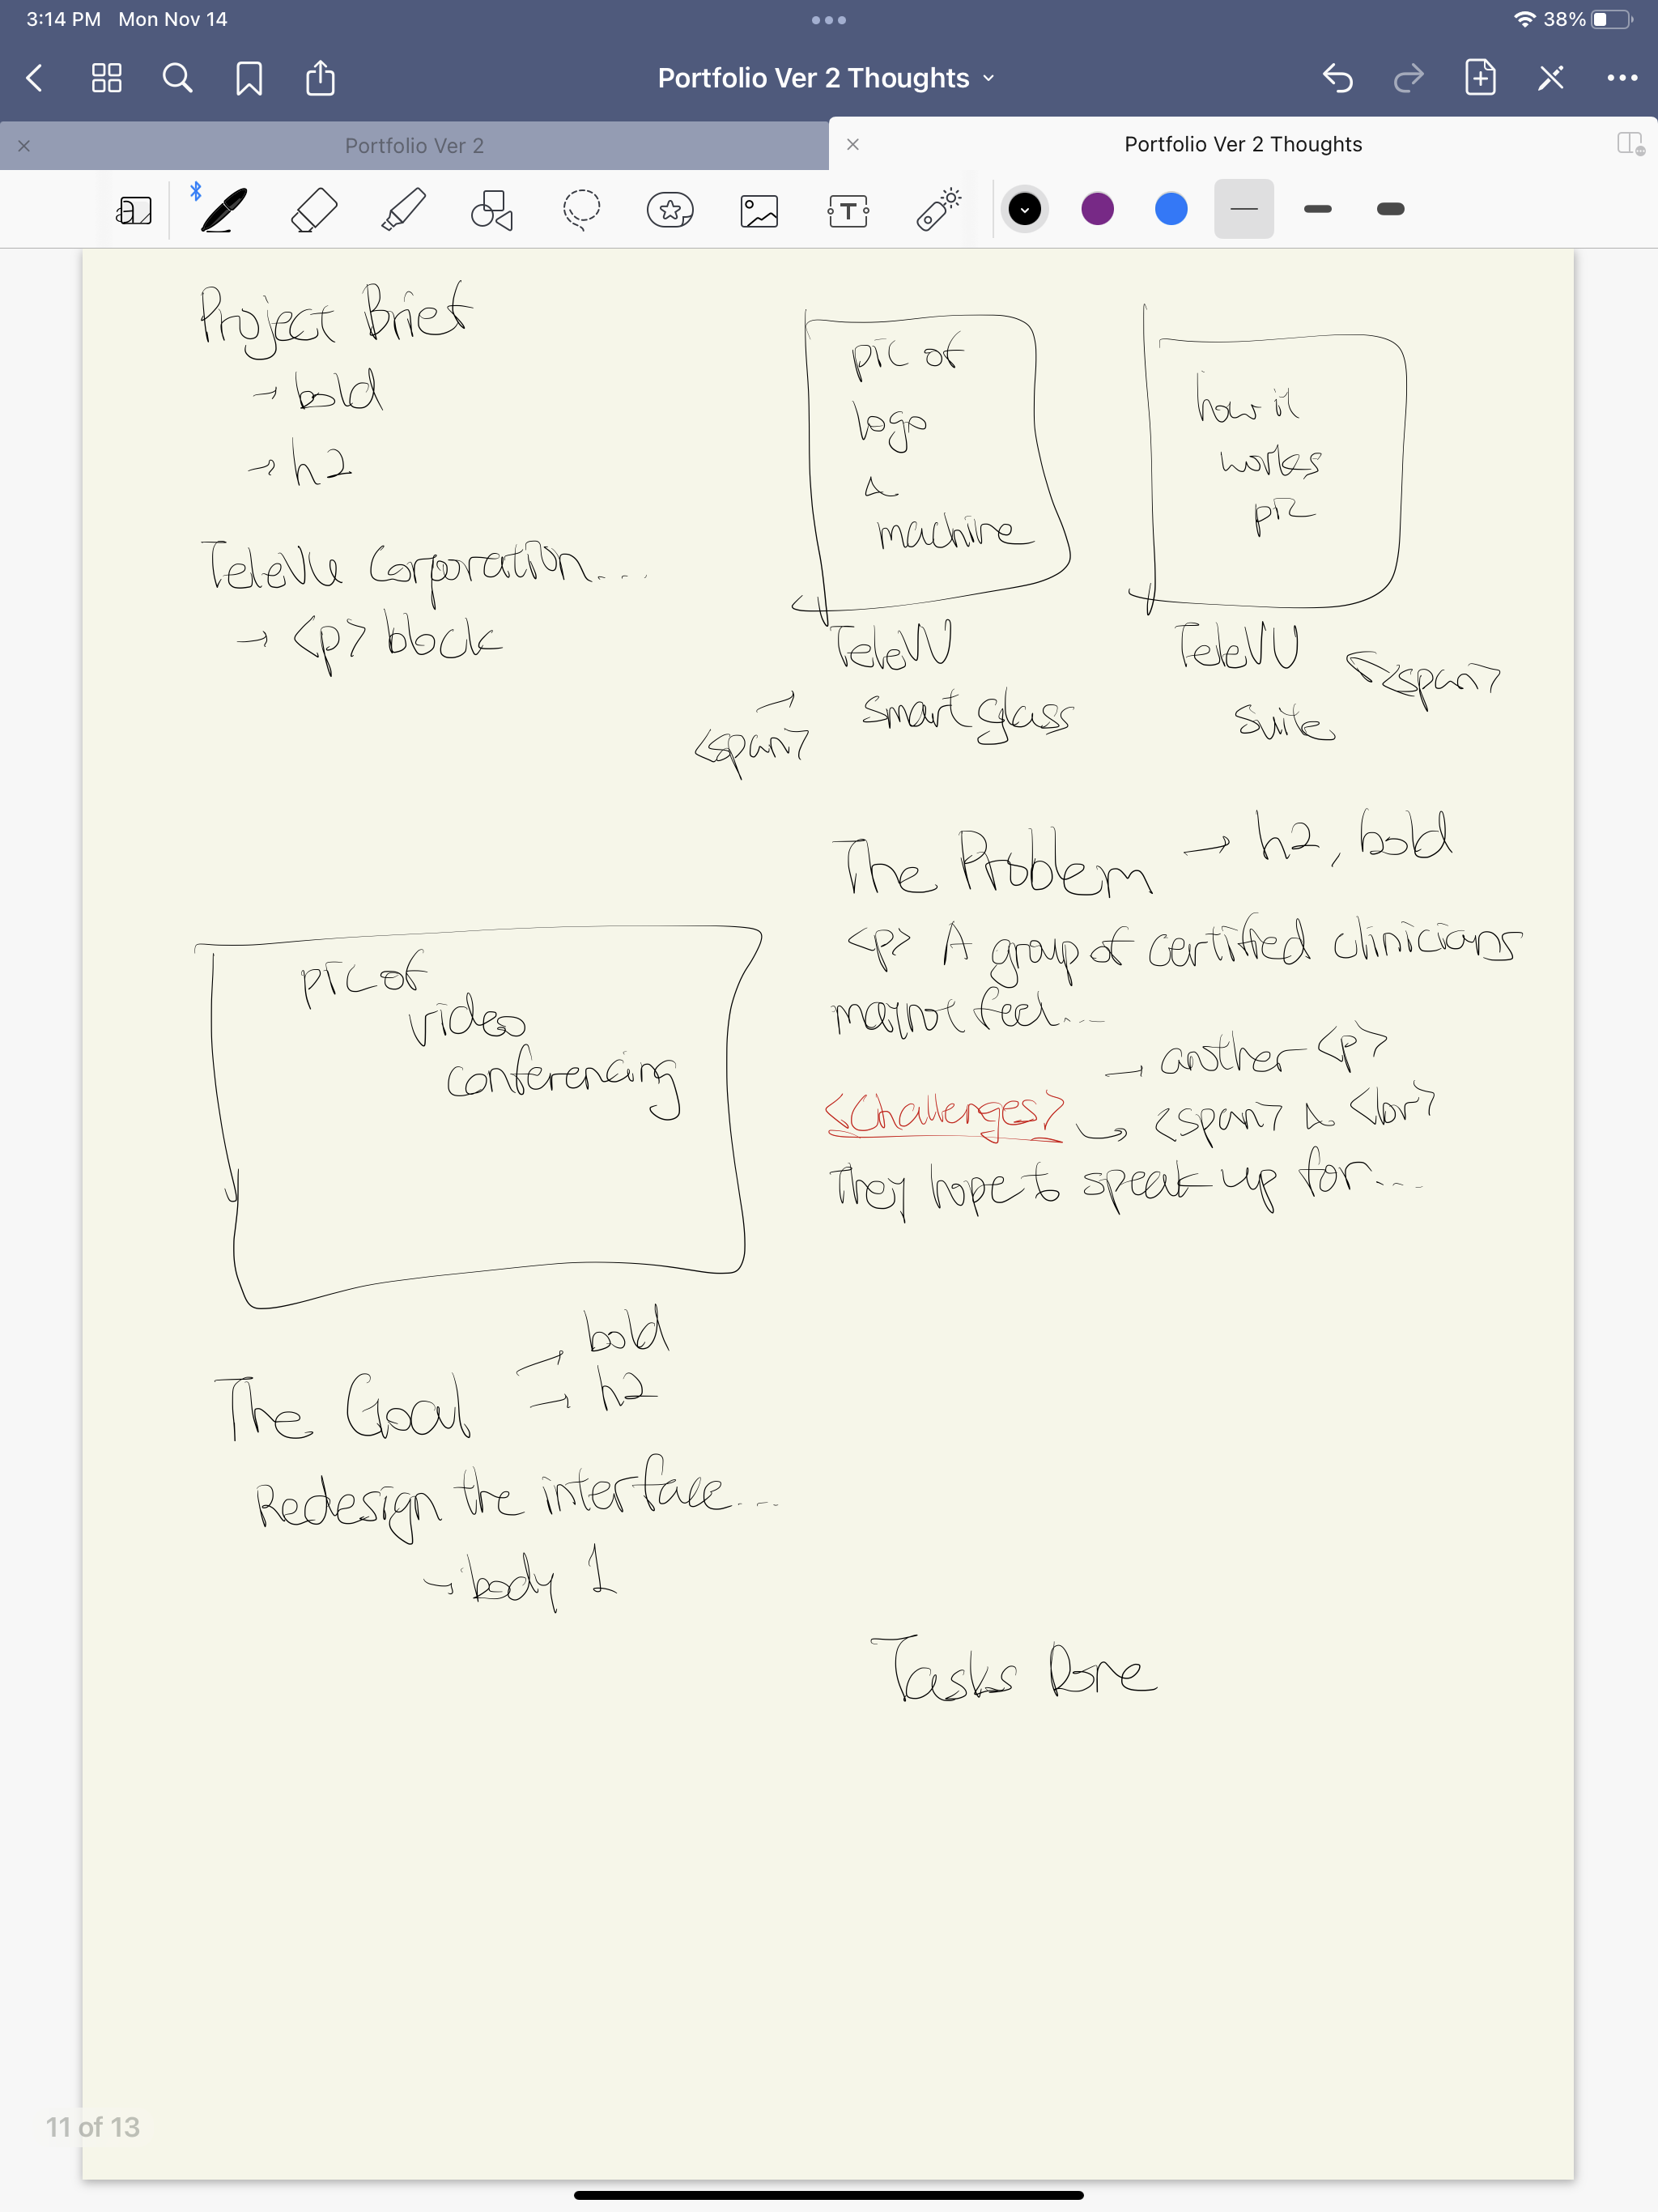 3:14 PM Mon Nov 14
38%
Portfolio Ver 2 Thoughts
Portfolio Ver 2
Portfolio Ver 2 Thoughts
Project Brief
→ bold
→ h2
TeleVU Corporation....
→ <p> block
pic of
logo
&
machine
TeleVU
smart glass
<span>
how it
works
pic
TeleVU
suite
<span>
pic of
video
conferencing
The Problem → h2, bold
<p> A group of certified clinicians
may not feel....
→ another <p>
<Challenges> → <span> & <br>
They hope to speak up for....
The Goal
→ bold
→ h2
Redesign the interface....
→ body 1
Tasks Done
11 of 13